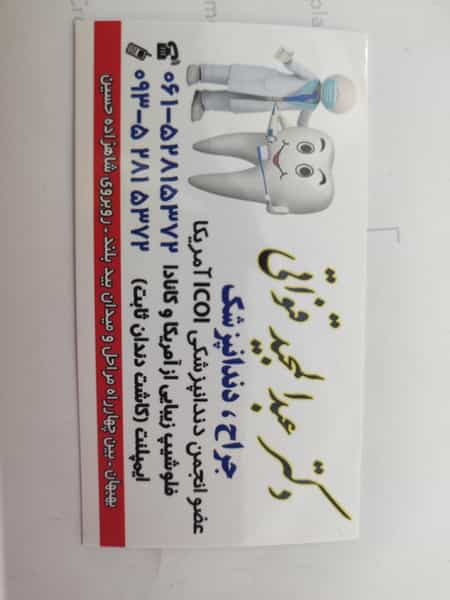 دکتر عبدالمجید قنواتی
جراح ، دندانپزشک
عضو انجمن دندانپزشکی ICOI آمریکا
فلوشیپ زیبایی از آمریکا و کانادا
ایمپلنت (کاشت دندان ثابت)
۰۶۱-۵۲۸۱۵۳۷۲
۰۹۳-۵۲۸۱۵۳۷۲
بهبهان - بین چهارراه مراحل و میدان بید بلند - روبروی شاهزاده حسین